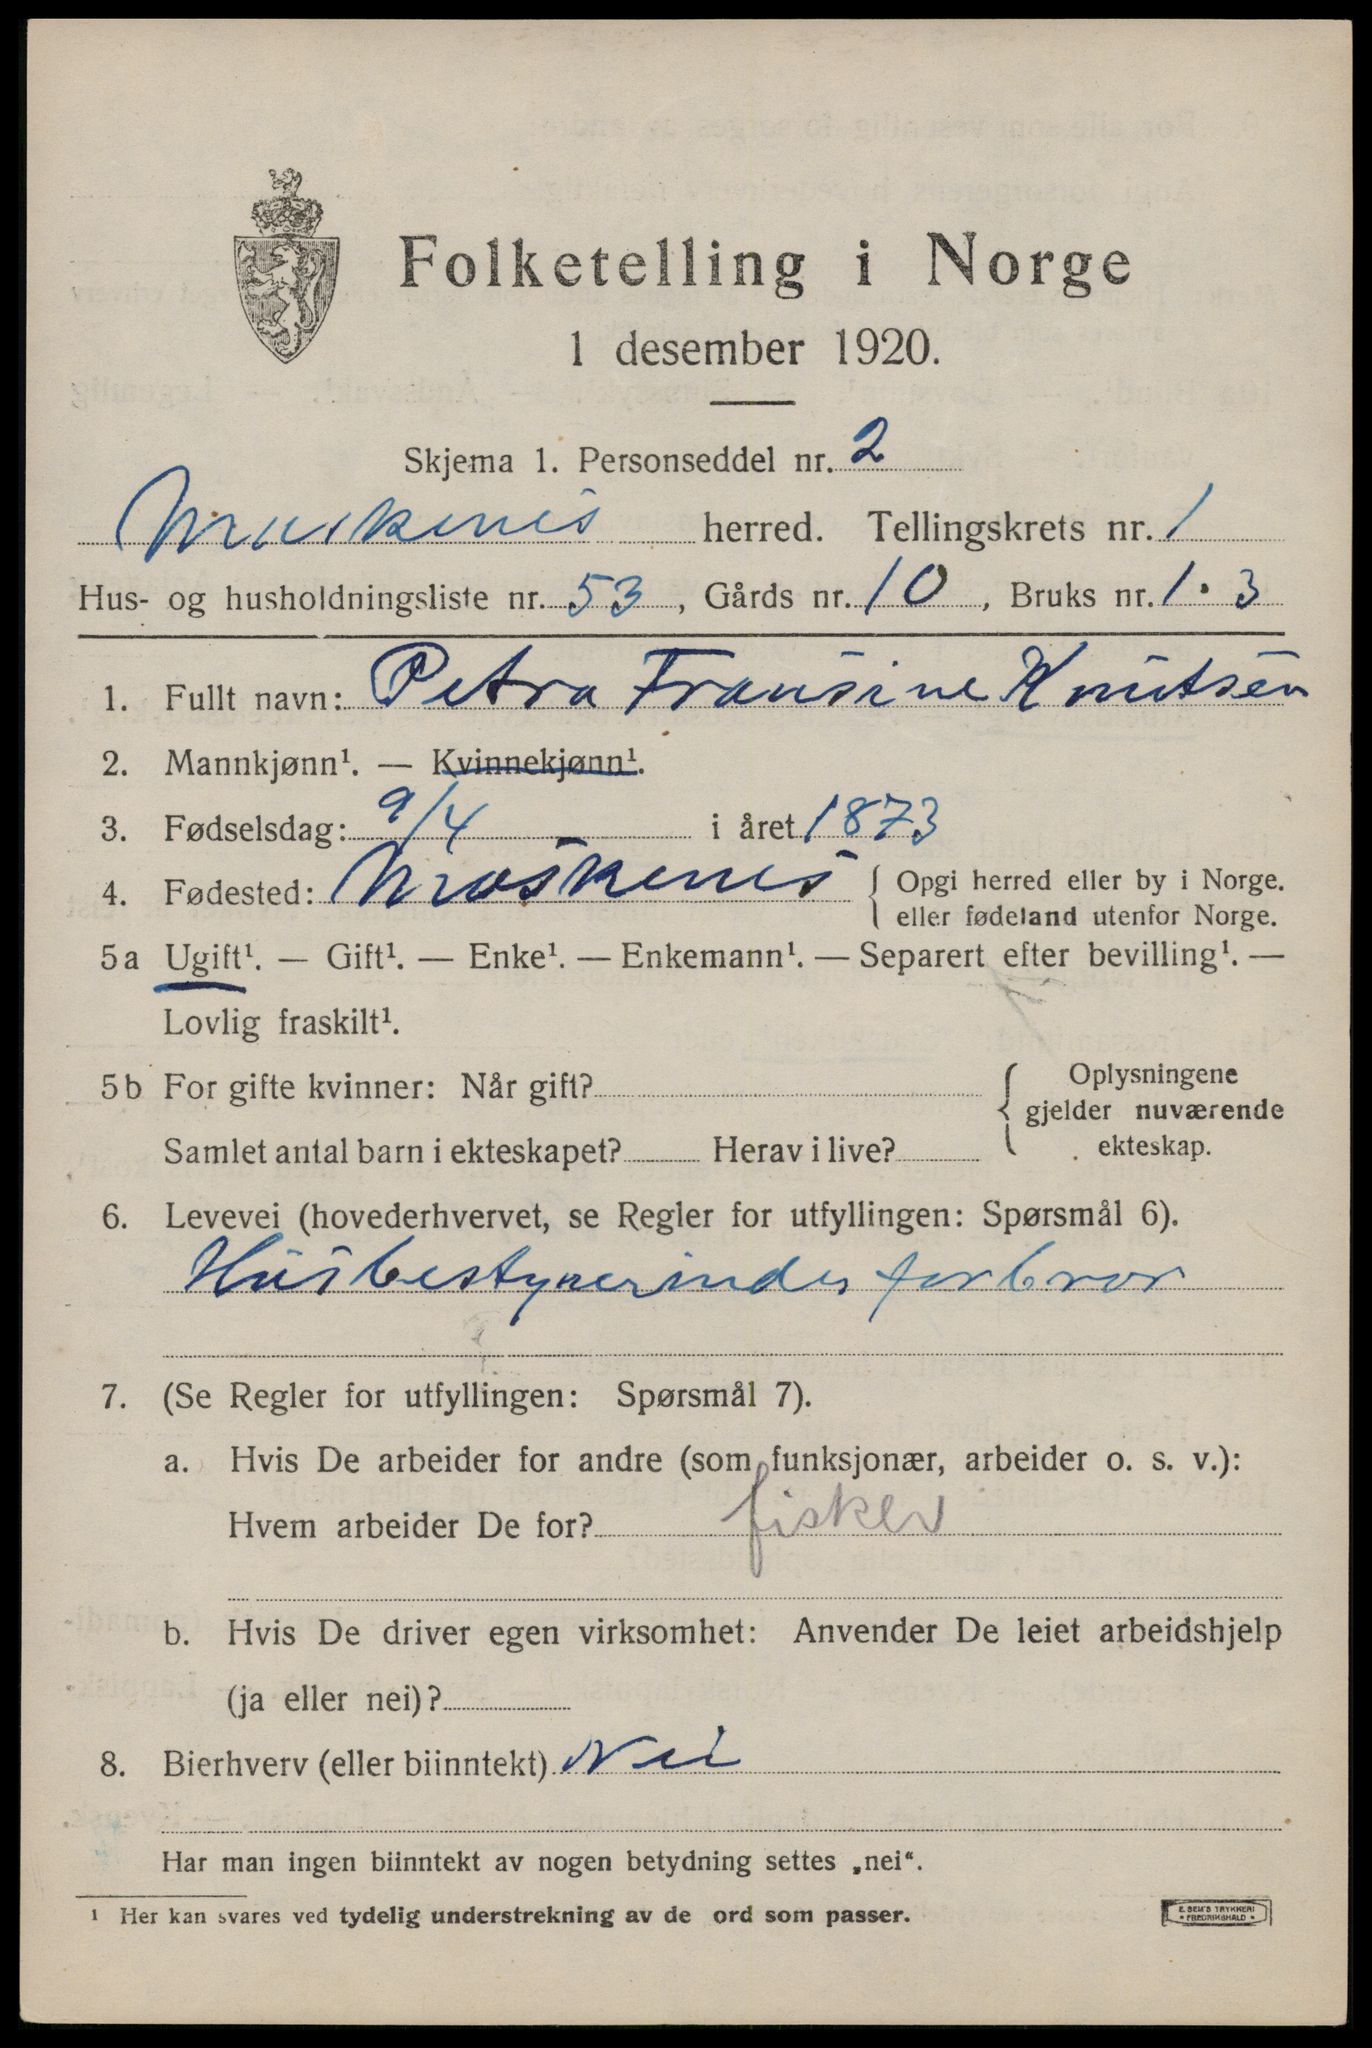 Folketelling i Norge
1 desember 1920.
Skjema 1. Personseddel nr. 2
Moskenes herred. Tellingskrets nr. 1
Hus- og husholdningsliste nr. 53, Gårds nr. 10, Bruks nr. 1 · 3
1. Fullt navn: Petra Fransine Knutsen
2. Mannkjønn¹. — Kvinnekjønn¹.
3. Fødselsdag: 9/4 i året 1873
4. Fødested: Moskenes { Opgi herred eller by i Norge.
eller fødeland utenfor Norge.
5a Ugift¹. — Gift¹. — Enke¹. — Enkemann¹. — Separert efter bevilling¹. —
Lovlig fraskilt¹.
5b For gifte kvinner: Når gift? { Oplysningene
gjelder nuværende
Samlet antal barn i ekteskapet? Herav i live? ekteskap.
6. Levevei (hovederhvervet, se Regler for utfyllingen: Spørsmål 6).
Husbestyrerinde for bror
7. (Se Regler for utfyllingen: Spørsmål 7).
a. Hvis De arbeider for andre (som funksjonær, arbeider o. s. v.):
Hvem arbeider De for? fisker
b. Hvis De driver egen virksomhet: Anvender De leiet arbeidshjelp
(ja eller nei)?
8. Bierhverv (eller biinntekt) Nei
Har man ingen biinntekt av nogen betydning settes „nei“.
¹ Her kan svares ved tydelig understrekning av de ord som passer.
E. SEM'S TRYKKERI
• FREDRIKSHALD •